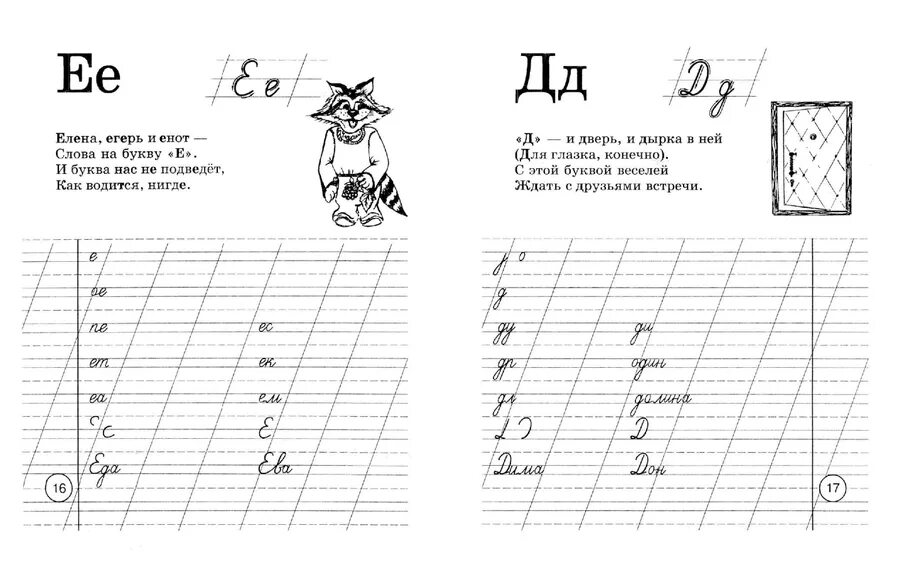 Ее
Е е
Елена, егерь и енот —
Слова на букву «Е».
И буква нас не подведёт,
Как водится, нигде.
е
ое
пе ес
ет ек
еа ем
Е
Еда Ева
16
Дд
Д д
«Д» — и дверь, и дырка в ней
(Для глазка, конечно).
С этой буквой веселей
Ждать с друзьями встречи.
д
ду ди
др один
дл долина
Д
Дима Дон
17